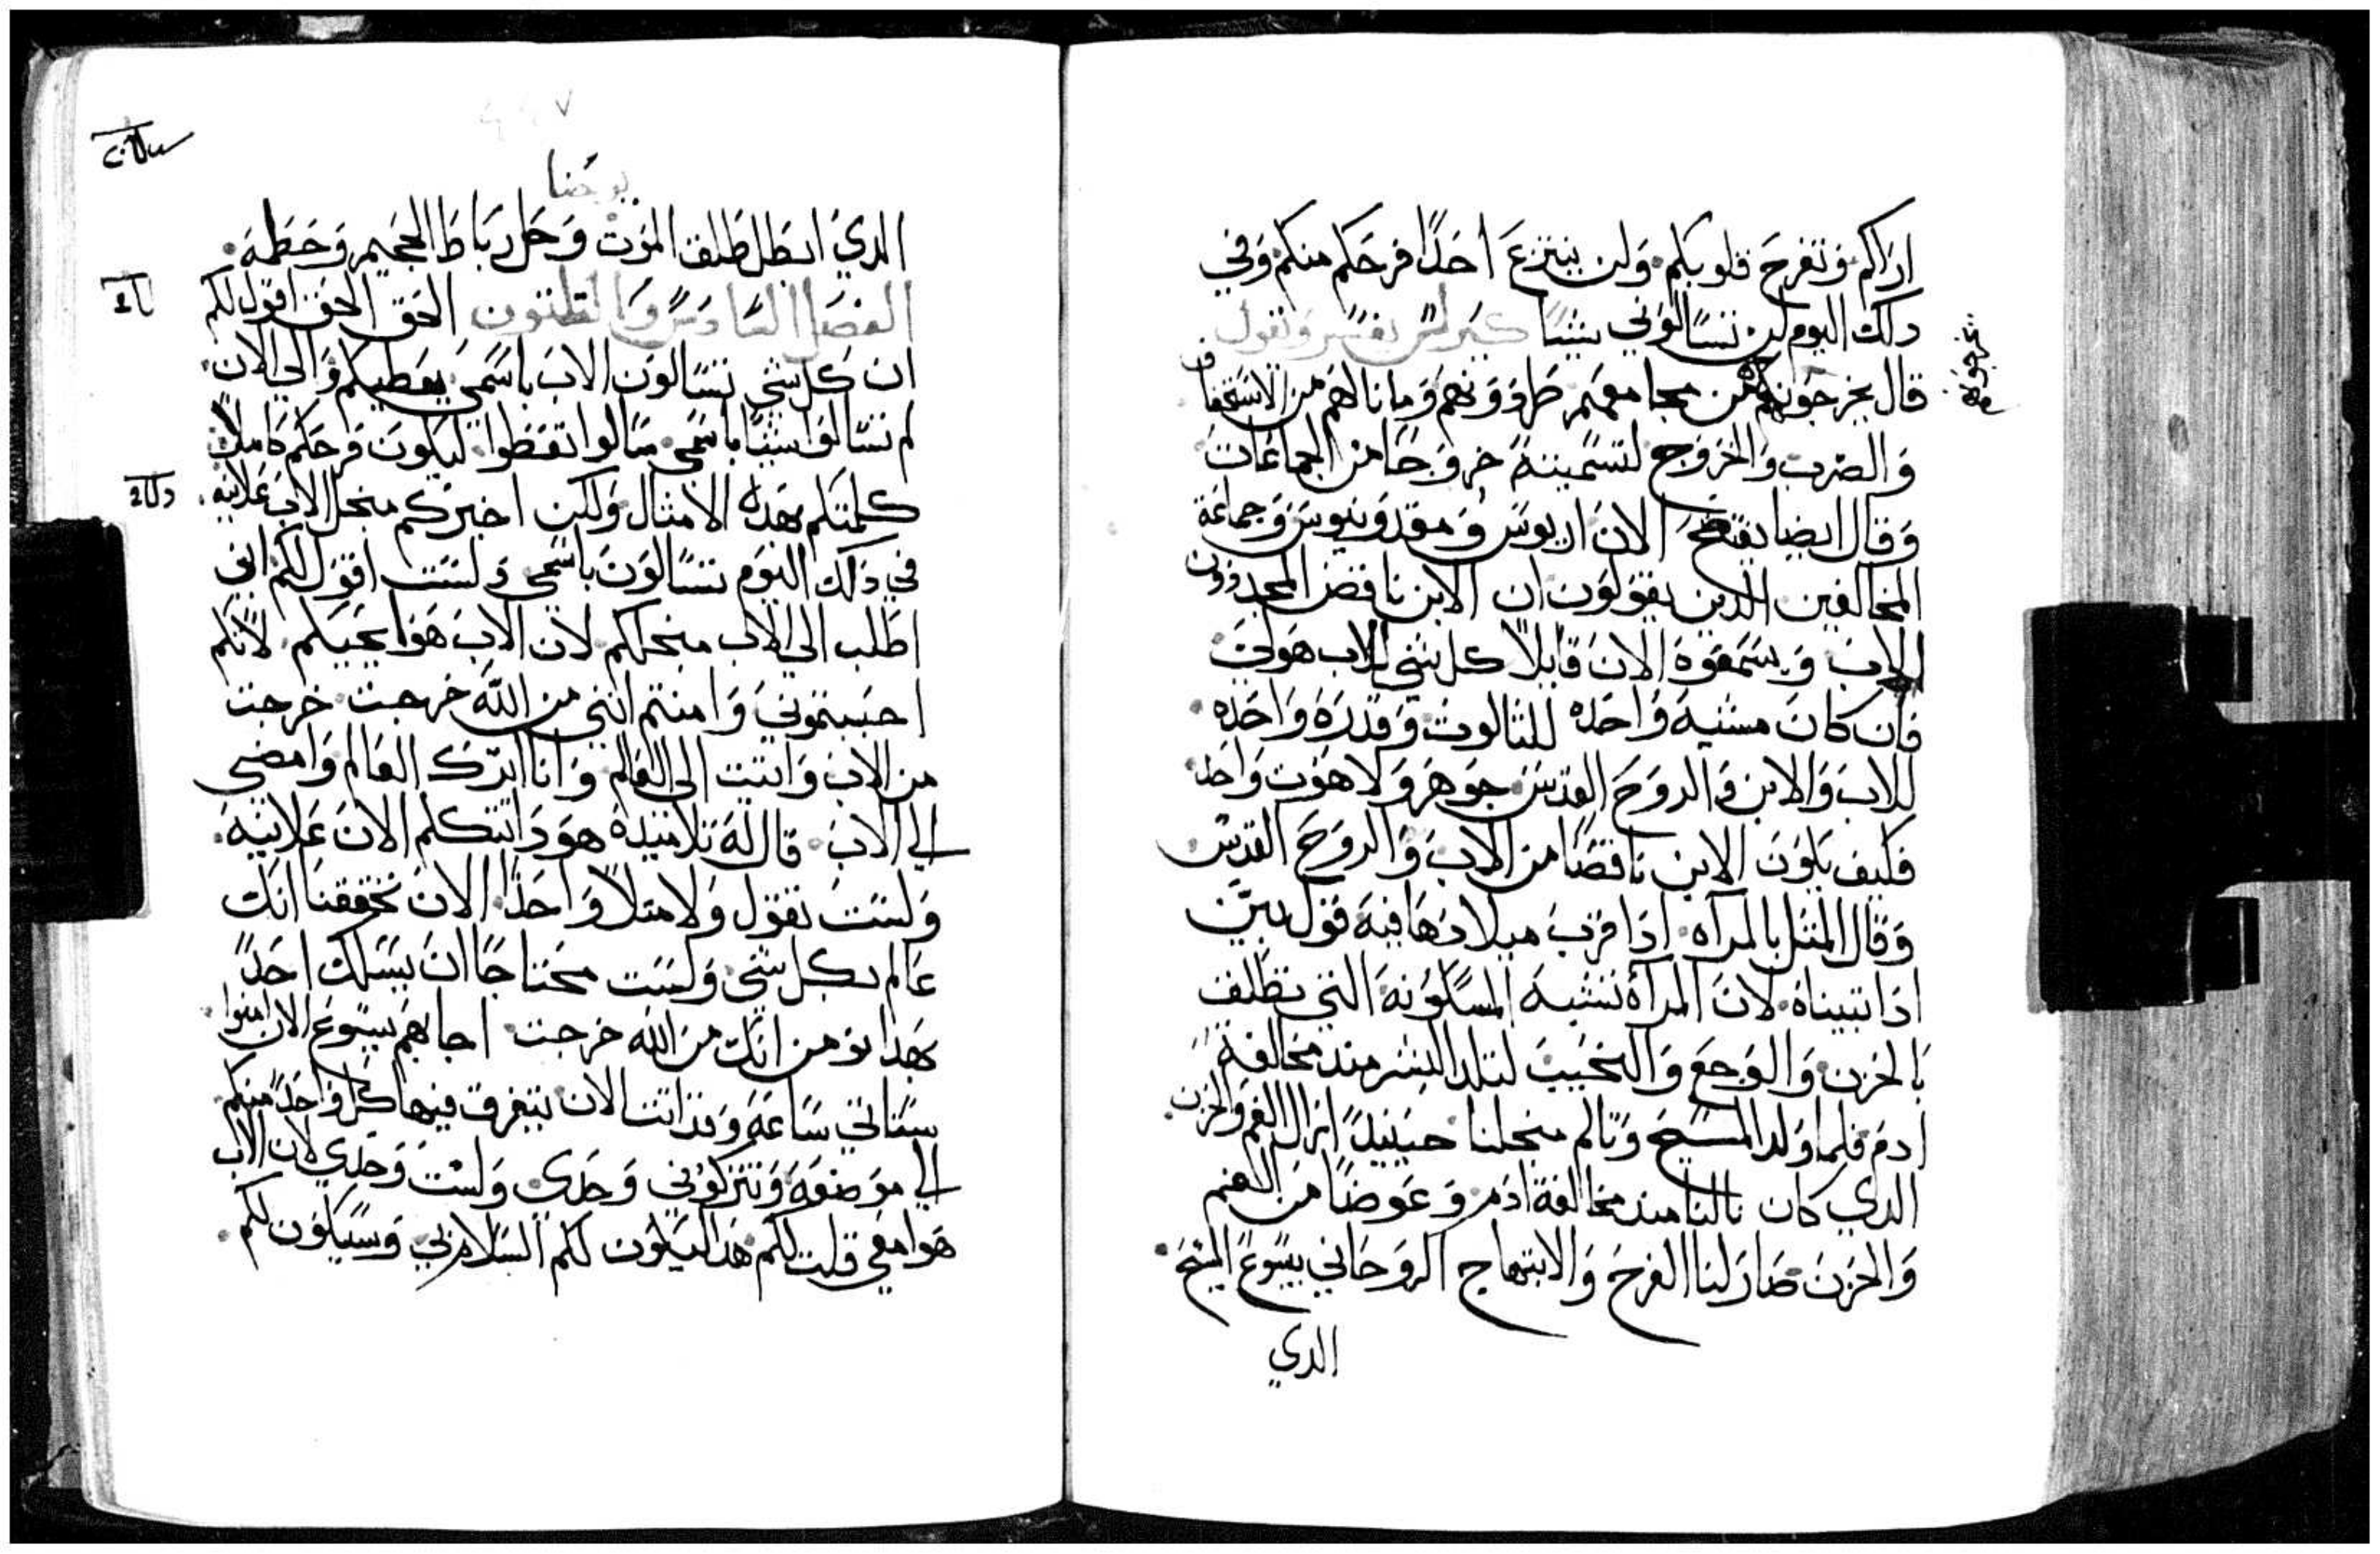 اراكم وتفرح قلوبكم ولن ينتزع احدًا فرحكم منكم وفي
دلك اليوم لن تسالوني شيئًا كيرلس يفسر ويقول
قال يخرجونكم من مجامعهم طردوهم وما نالهم من الاستخفاف
يخرجونكم
والضرب والخروج لتسميته خروجًا من الجماعات
وقال ايضا يفتضح الان اريوس ومقدونيوس وجماعة
المخالفين الدين يقولون ان الابن ناقص المجد دون
الاب ويسمعوه الان قايلاً كل شي للاب هو لي
فان كان مشية واحده للثالوث وقدرة واحده
للاب والابن والروح القدس جوهر ولاهوت واحد
فكيف يكون الابن ناقصًا من الاب والروح القدس
وقال المثل بالمرآه ادا قرب ميلادها فيه قول بين
ادا تبيناه لان المرآة تشبه المسكونه التي تطلق
بالحزن والوجع والنحيب لتلد البشر مند مخالفة
ادم فلما ولد المسيح وتالم منجلنا حينيدً ازال الغم والحزن
الدي كان نالنا مند مخالفة ادم وعوضًا من الغم
والحزن صار لنا الفرح والابتهاج الروحاني بيسوع المسيح
الدي
يوحنا
الدي ابطل طلق الموت وحل رباط الجحيم وحطمه
الفصل السادس والثلثون الحق الحق اقول لكم
ان كل شي تسالون الاب باسمي يعطيكم والي الان
لم تسالوا شيئًا باسمي سالوا تعطوا ليكون فرحكم كاملاً
كلمتكم بهده الامثال ولكن اخبركم منجل الاب علانيه
في دلك اليوم تسالون باسمي ولست اقول لكم اني
اطلب الي الاب منجلكم لان الاب هوا يحبكم لانكم
احببتموني وامنتم انني من الله خرجت خرجت
من الاب واتيت الى العالم وانا اترك العالم وامضي
الي الاب قال له تلاميده هودا تتكلم الان علانيه
ولست تقول ولا مثلاً واحدًا الان تحققنا انك
عالم بكل شي ولست محتاجًا ان يسلك احدً
بهدا نومن انك من الله خرجت اجابهم يسوع الان امنوا
ستاتي ساعه وقد اتت الان يتفرق فيها كل واحدً منكم
الي موضعه وتتركوني وحدي ولست وحدي لان الاب
هوا معي قلت لكم هدا ليكون لكم السلام بي وسيكون لكم